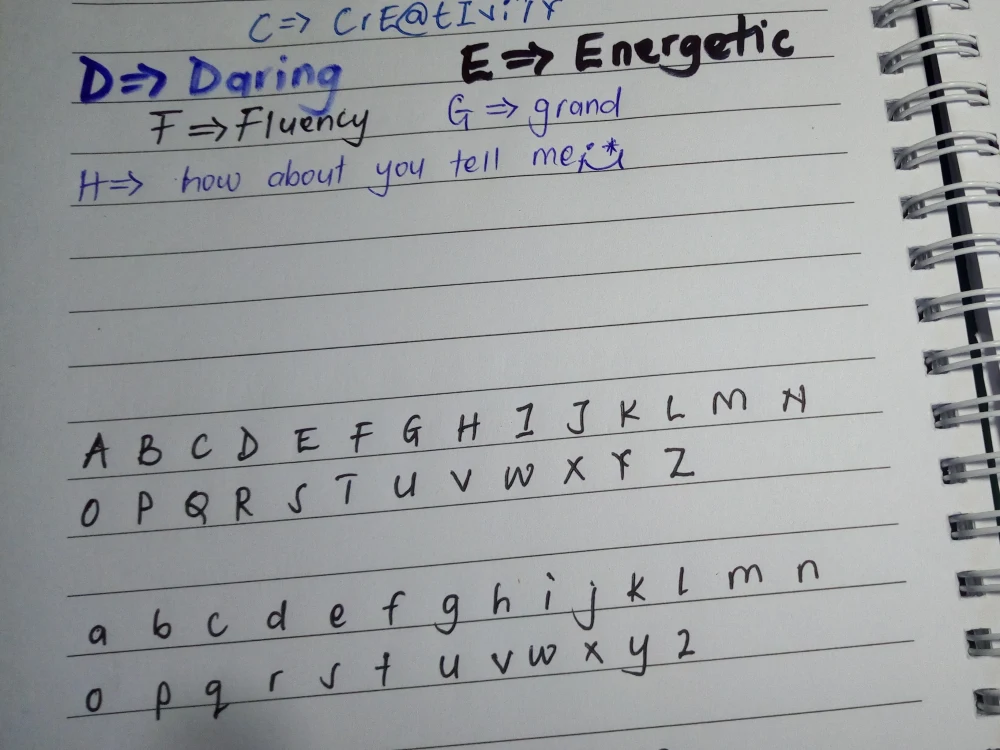 C => CrE@tIvitY
D => Daring E => Energetic
F => Fluency G => grand
H => how about you tell me
A B C D E F G H I J K L M N
O P Q R S T U V W X Y Z
a b c d e f g h i j k l m n
o p q r s t u v w x y z